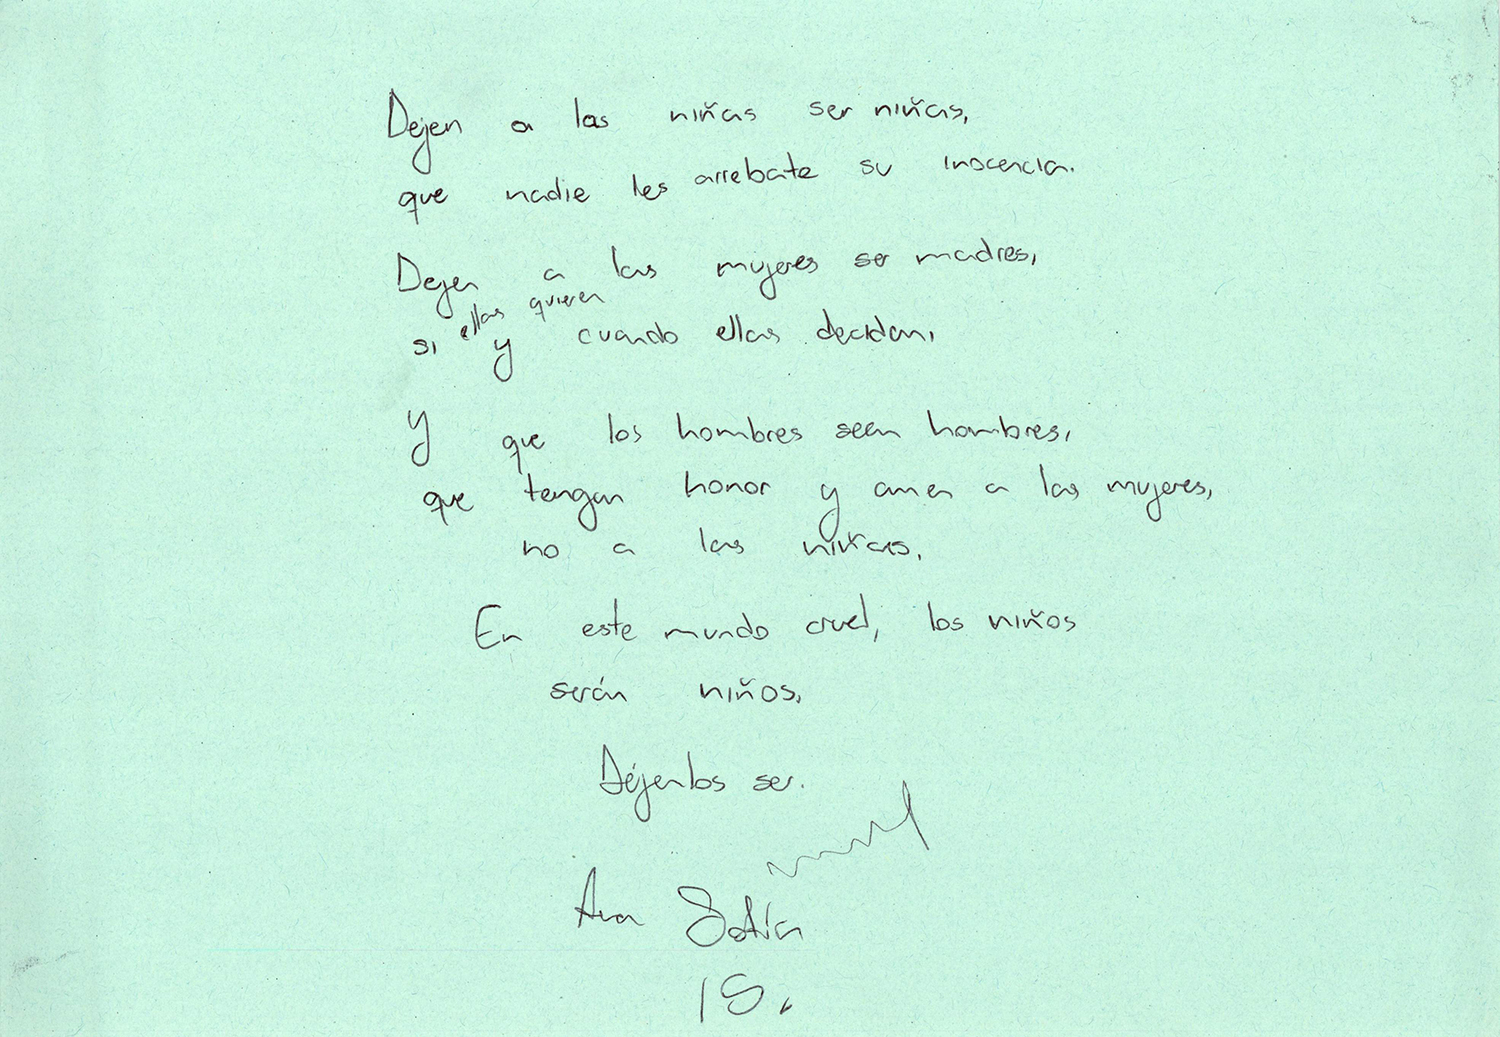 Dejen a las niñas ser niñas,
que nadie les arrebate su inocencia.
Dejen a las mujeres ser madres,
si ellas quieren y cuando ellas decidan,
Y que los hombres seen hombres,
que tengan honor y amen a las mujeres,
no a las niñas.
En este mundo cruel, los niños
serán niños.
Déjenlos ser.
Ana Sofía
15.